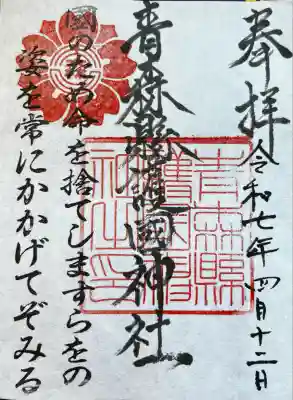 奉拝
令和七年四月十二日
青森縣護國神社
國のため命を捨てしますらをの
姿を常にかかげてぞみる
青森縣護國神社之印